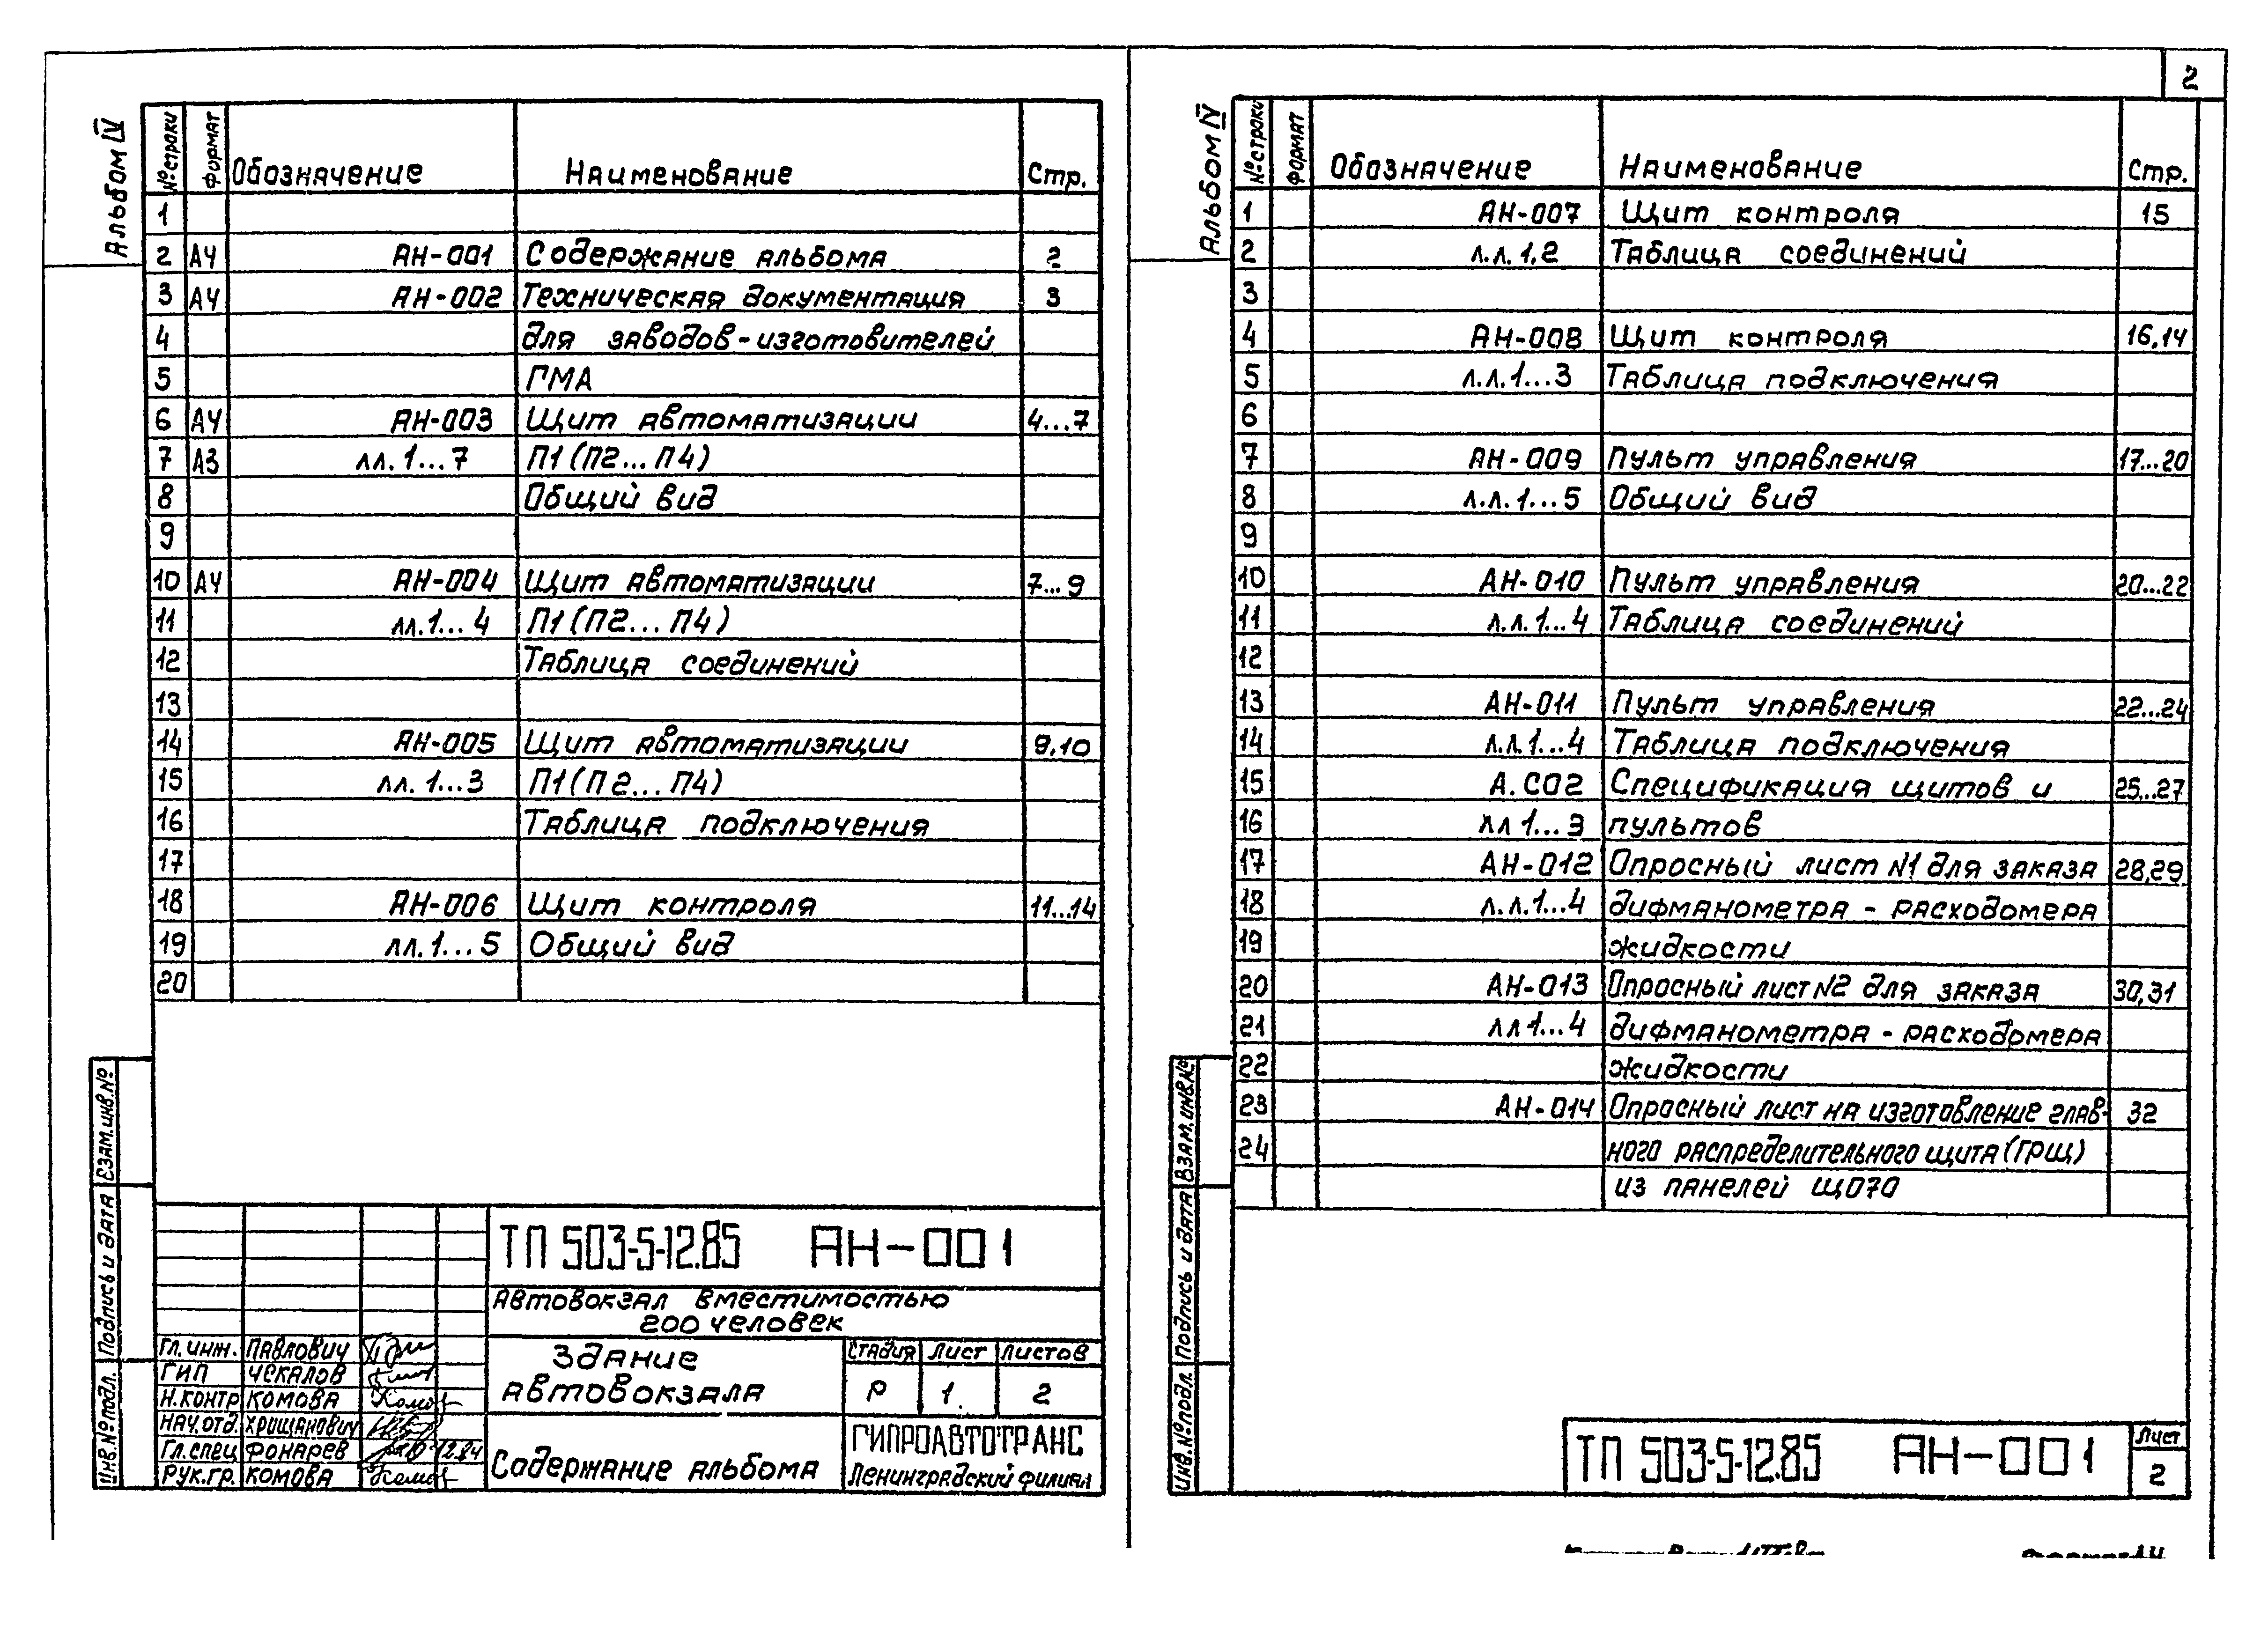 2
Альбом IV
№ строки Формат Обозначение Наименование Стр.
1
2 А4 АН-001 Содержание альбома 2
3 А4 АН-002 Техническая документация 3
4 для заводов-изготовителей
5 ГМА
6 А4 АН-003 Щит автоматизации 4...7
7 А3 лл. 1...7 П1 (П2... П4)
8 Общий вид
9
10 А4 АН-004 Щит автоматизации 7...9
11 лл. 1... 4 П1 (П2... П4)
12 Таблица соединений
13
14 АН-005 Щит автоматизации 9,10
15 лл. 1...3 П1 (П2... П4)
16 Таблица подключения
17
18 АН-006 Щит контроля 11...14
19 лл. 1...5 Общий вид
20
ТП 503-5-12.85 АН-001
Автовокзал вместимостью
200 человек
Гл. инж. Павлович
ГИП Чекалов
Н.контр Комова
Нач. отд. Хрищанович
Гл. спец Фонарев 12.84
Рук. гр. Комова
Здание
автовокзала
Стадия Лист Листов
Р 1. 2
Содержание альбома
ГИПРОАВТОТРАНС
Ленинградский филиал
Взам. инв. №
Подпись и дата
Инв. № подл.
Альбом IV
№ строки Формат Обозначение Наименование Стр.
1 АН-007 Щит контроля 15
2 л.л. 1,2 Таблица соединений
3
4 АН-008 Щит контроля 16,14
5 л.л. 1...3 Таблица подключения
6
7 АН-009 Пульт управления 17...20
8 л.л. 1...5 Общий вид
9
10 АН-010 Пульт управления 20...22
11 л.л. 1...4 Таблица соединений
12
13 АН-011 Пульт управления 22...24
14 л.л. 1...4 Таблица подключения
15 А.СО2 Спецификация щитов и 25...27
16 лл 1...3 пультов
17 АН-012 Опросный лист №1 для заказа 28,29
18 л.л. 1...4 дифманометра - расходомера
19 жидкости
20 АН-013 Опросный лист №2 для заказа 30,31
21 лл 1...4 дифманометра - расходомера
22 жидкости
23 АН-014 Опросный лист на изготовление глав- 32
24 ного распределительного щита (ГРЩ)
из панелей ЩО70
Взам. инв. №
Подпись и дата
Инв. № подл.
ТП 503-5-12.85 АН-001
Лист
2